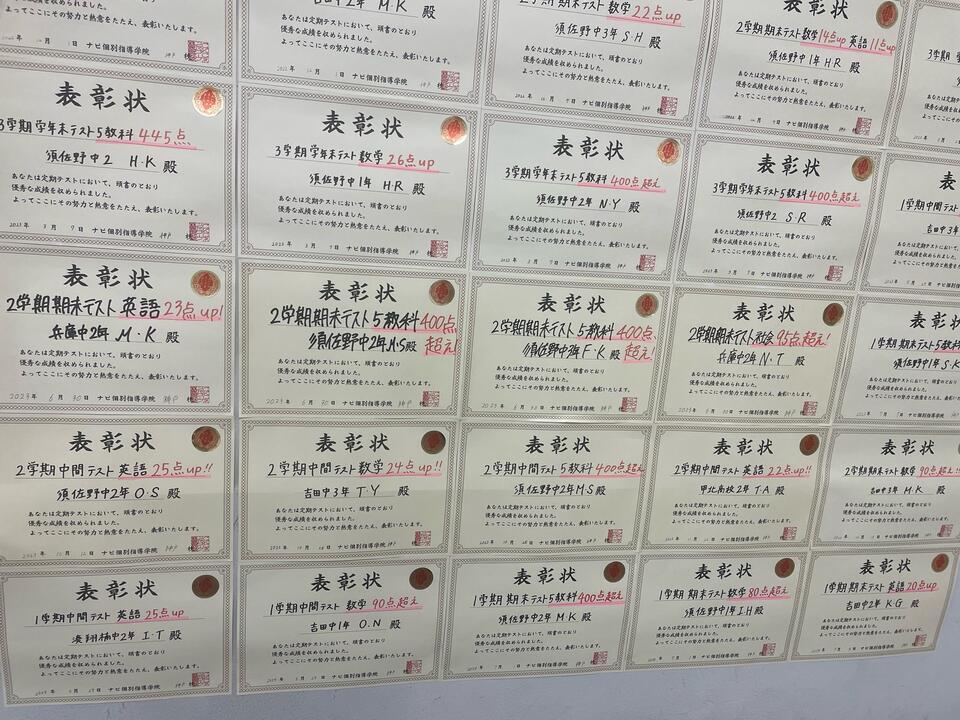 吉田中2年 M・K 殿
あなたは定期テストにおいて、頭書のとおり
優秀な成績を収められました。
よってここにその努力と熱意をたたえ、表彰いたします。
ナビ個別指導学院
数学 22点up
須佐野中3年 S・H 殿
あなたは定期テストにおいて、頭書のとおり
優秀な成績を収められました。
よってここにその努力と熱意をたたえ、表彰いたします。
ナビ個別指導学院
表彰状
2学期期末テスト数学14点up 英語11点up
須佐野中1年 H・R 殿
あなたは定期テストにおいて、頭書のとおり
優秀な成績を収められました。
よってここにその努力と熱意をたたえ、表彰いたします。
ナビ個別指導学院
表彰状
3学期学年末テスト5教科 445点
須佐野中2 H・K 殿
あなたは定期テストにおいて、頭書のとおり
優秀な成績を収められました。
よってここにその努力と熱意をたたえ、表彰いたします。
2023年 3月 7日 ナビ個別指導学院
表彰状
3学期学年末テスト 数学 26点up
須佐野中1年 H・R 殿
あなたは定期テストにおいて、頭書のとおり
優秀な成績を収められました。
よってここにその努力と熱意をたたえ、表彰いたします。
2023年 3月 7日 ナビ個別指導学院
表彰状
3学期学年末テスト5教科 400点超え
須佐野中2年 N・Y 殿
あなたは定期テストにおいて、頭書のとおり
優秀な成績を収められました。
よってここにその努力と熱意をたたえ、表彰いたします。
2023年 3月 7日 ナビ個別指導学院
表彰状
3学期学年末テスト5教科400点超え
須佐野中2 S・R 殿
あなたは定期テストにおいて、頭書のとおり
優秀な成績を収められました。
よってここにその努力と熱意をたたえ、表彰いたします。
2023年 3月 7日 ナビ個別指導学院
1学期中間テスト
吉田中3年
表彰状
2学期期末テスト 英語 23点up!
兵庫中2年 M・K 殿
あなたは定期テストにおいて、頭書のとおり
優秀な成績を収められました。
よってここにその努力と熱意をたたえ、表彰いたします。
2023年 6月 30日 ナビ個別指導学院
表彰状
2学期期末テスト 5教科400点
須佐野中2年 M・S 殿 超え!
あなたは定期テストにおいて、頭書のとおり
優秀な成績を収められました。
よってここにその努力と熱意をたたえ、表彰いたします。
2023年 6月 30日 ナビ個別指導学院
表彰状
2学期期末テスト 5教科400点
F・K 殿 超え!
あなたは定期テストにおいて、頭書のとおり
優秀な成績を収められました。
よってここにその努力と熱意をたたえ、表彰いたします。
2023年 6月 30日 ナビ個別指導学院
表彰状
2学期期末テスト社会 95点超え!
兵庫中2年 N・T 殿
あなたは定期テストにおいて、頭書のとおり
優秀な成績を収められました。
よってここにその努力と熱意をたたえ、表彰いたします。
ナビ個別指導学院
表彰状
1学期期末テスト5教科
須佐野中1年 S・K
表彰状
2学期中間テスト 英語 25点up!!
須佐野中2年 O・S 殿
あなたは定期テストにおいて、頭書のとおり
優秀な成績を収められました。
よってここにその努力と熱意をたたえ、表彰いたします。
ナビ個別指導学院
表彰状
2学期中間テスト 数学 24点up!!
吉田中3年 T・Y 殿
あなたは定期テストにおいて、頭書のとおり
優秀な成績を収められました。
よってここにその努力と熱意をたたえ、表彰いたします。
ナビ個別指導学院
表彰状
2学期中間テスト 5教科400点超え
須佐野中2年M・S 殿
あなたは定期テストにおいて、頭書のとおり
優秀な成績を収められました。
よってここにその努力と熱意をたたえ、表彰いたします。
ナビ個別指導学院
表彰状
2学期中間テスト 英語 22点up!!
甲北高校2年 T・A 殿
あなたは定期テストにおいて、頭書のとおり
優秀な成績を収められました。
よってここにその努力と熱意をたたえ、表彰いたします。
ナビ個別指導学院
表彰状
2学期期末テスト 数学 90点超え!!
吉田中3年 M・K 殿
あなたは定期テストにおいて、頭書のとおり
優秀な成績を収められました。
よってここにその努力と熱意をたたえ、表彰いたします。
ナビ個別指導学院
表彰状
1学期中間テスト 英語 25点up
湊翔楠中2年 I・T 殿
あなたは定期テストにおいて、頭書のとおり
優秀な成績を収められました。
よってここにその努力と熱意をたたえ、表彰いたします。
ナビ個別指導学院
表彰状
1学期中間テスト 数学 90点超え
吉田中1年 O・N 殿
あなたは定期テストにおいて、頭書のとおり
優秀な成績を収められました。
よってここにその努力と熱意をたたえ、表彰いたします。
ナビ個別指導学院
表彰状
1学期期末テスト5教科400点超え
須佐野中2年 M・K 殿
あなたは定期テストにおいて、頭書のとおり
優秀な成績を収められました。
よってここにその努力と熱意をたたえ、表彰いたします。
ナビ個別指導学院
表彰状
1学期期末テスト数学80点超え
須佐野中1年 I・H 殿
あなたは定期テストにおいて、頭書のとおり
優秀な成績を収められました。
よってここにその努力と熱意をたたえ、表彰いたします。
ナビ個別指導学院
表彰状
1学期期末テスト 英語 20点up
吉田中2年 K・G 殿
あなたは定期テストにおいて、頭書のとおり
優秀な成績を収められました。
よってここにその努力と熱意をたたえ、表彰いたします。
ナビ個別指導学院